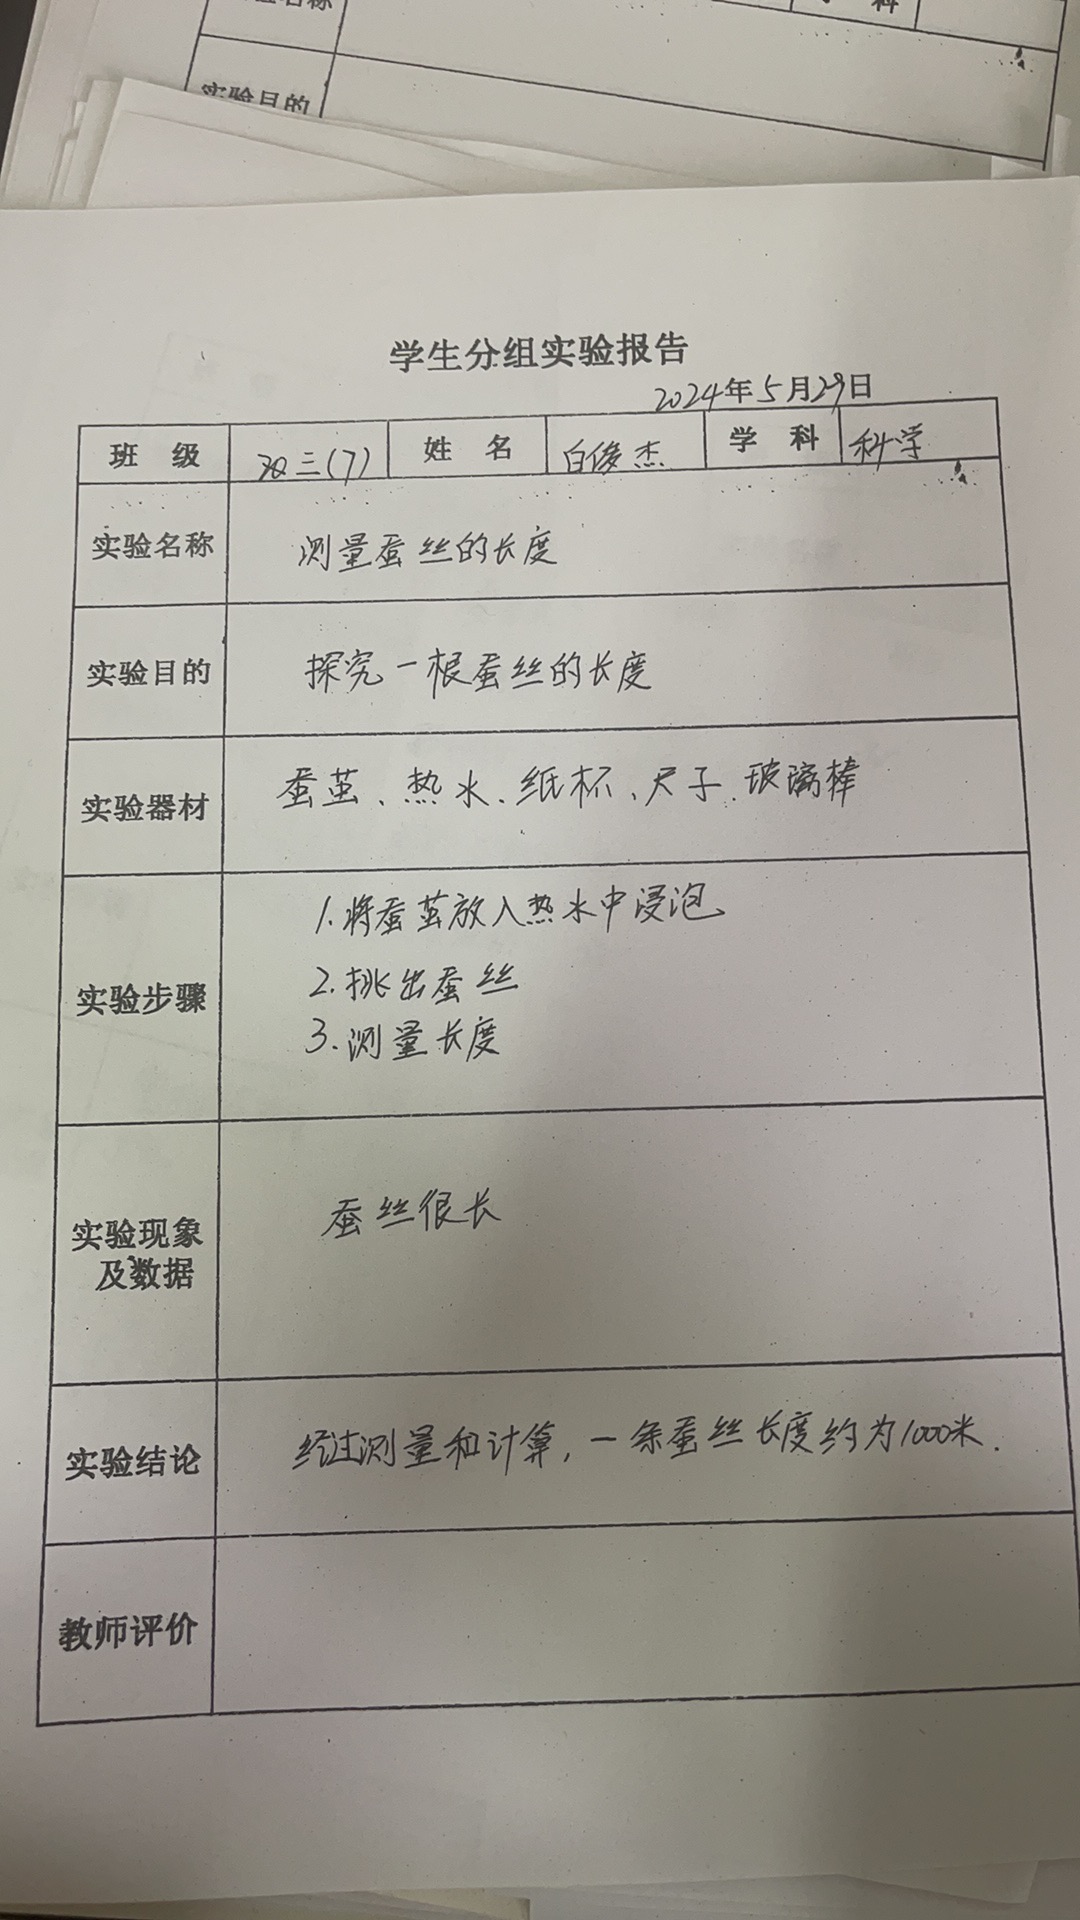 科
实验目的
学生分组实验报告
2024年5月29日
班 级 初三(7) 姓 名 白俊杰 学 科 科学
实验名称 测量蚕丝的长度
实验目的 探究一根蚕丝的长度
实验器材 蚕茧、热水、纸杯、尺子、玻璃棒
实验步骤
1.将蚕茧放入热水中浸泡
2.挑出蚕丝
3.测量长度
实验现象
及数据
蚕丝很长
实验结论 经过测量和计算,一条蚕丝长度约为1000米.
教师评价